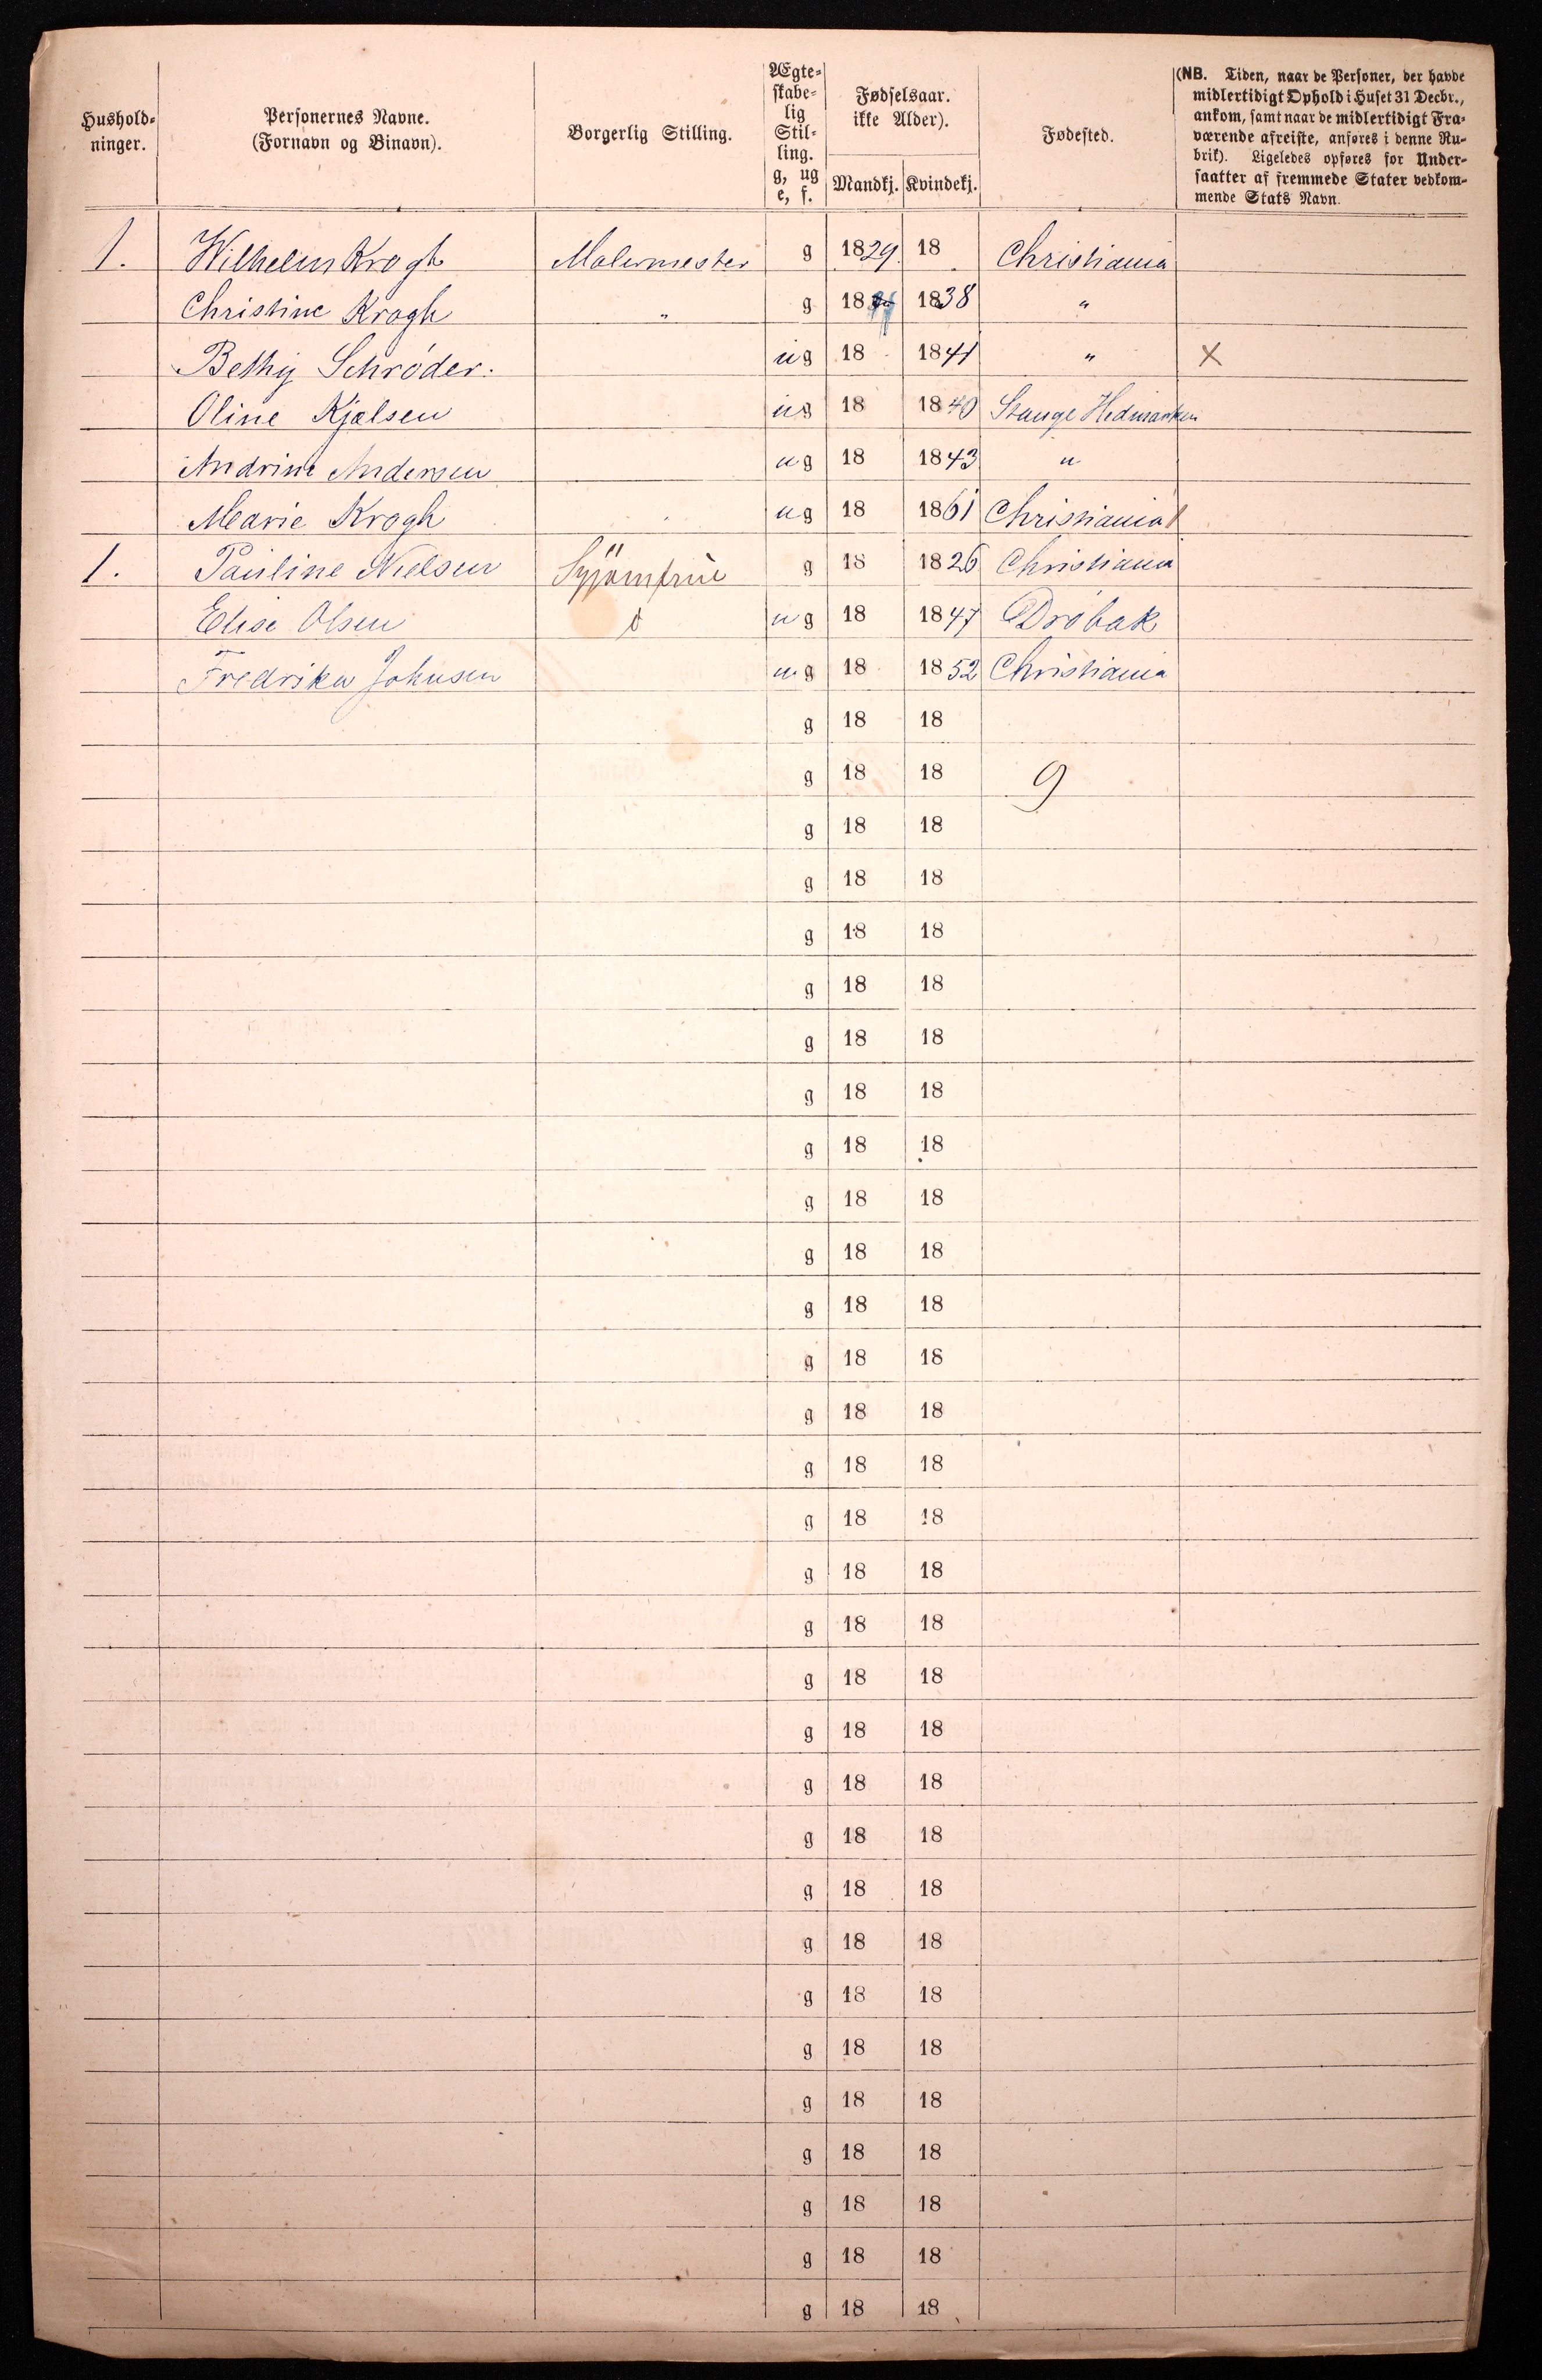 Hushold-
ninger.
Personernes Navne.
(Fornavn og Binavn).
Borgerlig Stilling.
Ægte-
skabe-
lig
Stil-
ling.
g, ug
e, f.
Fødselsaar.
ikke Alder).
Mandkj. Kvindekj.
Fødested.
(NB. Tiden, naar de Personer, der havde
midlertidigt Ophold i Huset 31 Decbr.,
ankom, samt naar de midlertidigt Fra-
værende afreiste, anføres i denne Ru-
brik). Ligeledes opføres for Under-
saatter af fremmede Stater vedkom-
mende Stats Navn.
1. Wilhelm Krogh Malermester g 1829. 18 Christiania
Christine Krogh " g 18 1838 "
Bethy Schrøder. ug 18 1841 " X
Oline Kjølsen ug 18 1840 Stange Hedmarken
Andrine Andersen ug 18 1843 "
Marie Krogh ug 18 1861 Christiania
1. Pauline Nielsen Syjomfrue g 18 1826 Christiania
Elise Olsen d ug 18 1847 Drøbak
Fredrika Johnsen ug 18 1852 Christiania
g 18 18
g 18 18 9
g 18 18
g 18 18
g 18 18
g 18 18
g 18 18
g 18 18
g 18 18
g 18 18
g 18 18
g 18 18
g 18 18
g 18 18
g 18 18
g 18 18
g 18 18
g 18 18
g 18 18
g 18 18
g 18 18
g 18 18
g 18 18
g 18 18
g 18 18
g 18 18
g 18 18
g 18 18
g 18 18
g 18 18
g 18 18